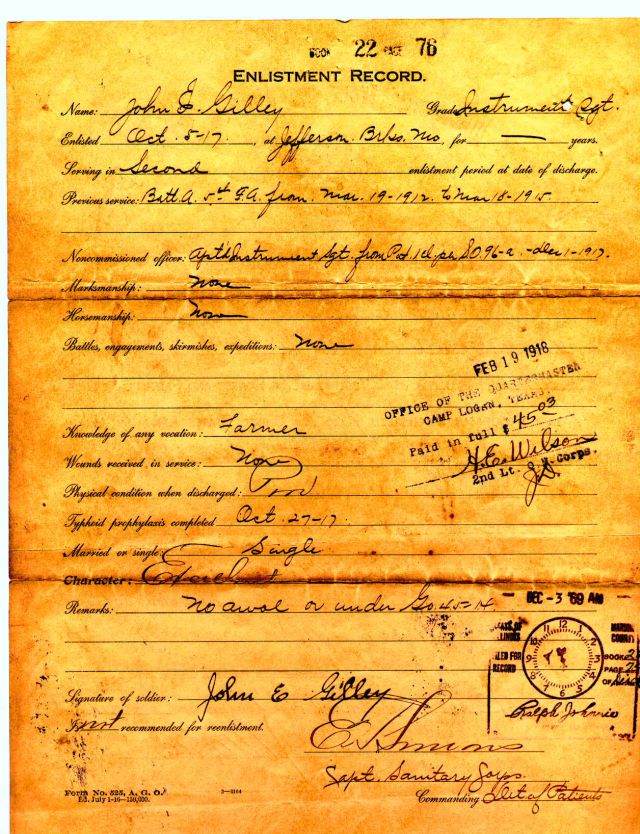 BOOK 22 PAGE 76
ENLISTMENT RECORD.
Name: John E Gilley Grade Instrument Sgt.
Enlisted Oct. 5-17, at Jefferson Brks. Mo, for — years.
Serving in Second enlistment period at date of discharge.
Previous service: Batt. A. 5th F.A. from Mar. 19-1912 to Mar 18-1915
Noncommissioned officer: Aptd Instrument Sgt. from Pvt. 1cl. per S.O. 96-a. - Dec 1-1917.
Marksmanship: None
Horsemanship: None
Battles, engagements, skirmishes, expeditions: None
FEB 19 1918
OFFICE OF THE QUARTERMASTER
CAMP LOGAN, TEXAS
Paid in full $ 45.03
H.E. Wilson
2nd Lt. Q. M. Corps.
Knowledge of any vocation: Farmer
Wounds received in service: None
Physical condition when discharged: Poor
Typhoid prophylaxis completed Oct. 27-17.
Married or single: Single
Character: Excellent
Remarks: No awol or under Go. 45-14.
DEC -3 '69 AM
STATE OF ILLINOIS
COUNTY
FILED FOR RECORD
12 1 2 3 4 5 6 7 8 9 10 11
BOOK
PAGE
OF
Ralph Johnnie
Signature of soldier: John E Gilley
not recommended for reenlistment.
Capt. Sanitary Corps
Commanding Det of Patients
Form No. 525, A. G. O.
Ed. July 1-16—150,000.
3—3164